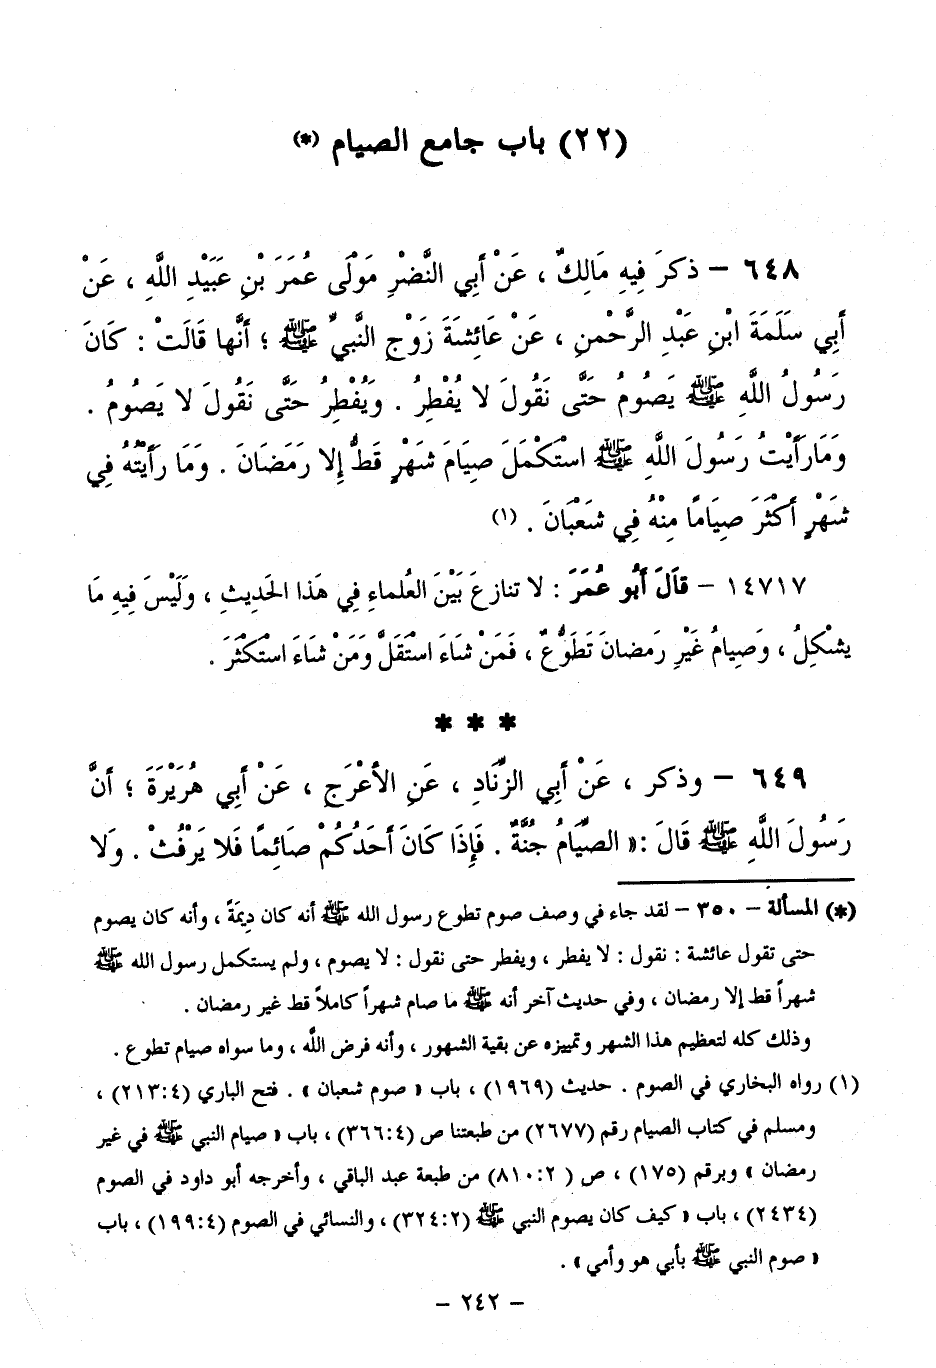 (٢٢) باب جامع الصيام (*)
٦٤٨ – ذكرَ فِيهِ مَالِكٌ ، عَنْ أَبِي النَّضْرِ مَوْلَى عُمَرَ بْنِ عَبَيْدِ اللَّهِ ، عَنْ
أَبِي سَلَمَةَ ابْنِ عَبْدِ الرَّحْمنِ ، عَنْ عَائِشَةَ زَوْجِ النَّبيِّ ﷺ ؛ أَنَّها قَالَتْ : كَانَ
رَسُولُ اللَّهِ ﷺ يَصُومُ حَتَّى نَقُولَ لا يُفْطِرُ . وَيُفْطِرُ حَتَّى نَقُولَ لا يَصُومُ .
وَمَارَأَيْتُ رَسُولَ اللَّهِ ﷺ اسْتَكْمَلَ صِيَامَ شَهْرٍ قَطُّ إِلا رَمَضَانَ . وَمَا رَأَيْتُهُ فِي
شَهْرٍ أَكْثَرَ صِيَامًا مِنْهُ فِي شَعْبَانَ . (١)
١٤٧١٧ – قَالَ أَبُو عُمَرَ : لا تنازعَ بَيْنَ العُلماءِ فِي هَذا الحَدِيثِ ، وَلَيْسَ فِيهِ مَا
يشْكِلُ ، وَصِيامُ غَيْرِ رَمضانَ تَطَوُّعٌ ، فَمَنْ شَاءَ اسْتَقَلَّ وَمَنْ شَاءَ اسْتَكْثَرَ .
* * *
٦٤٩ – وذكر ، عَنْ أَبِي الزِّنَادِ ، عَنِ الأَعْرَجِ ، عَنْ أَبِي هُرَيْرَةَ ؛ أَنَّ
رَسُولَ اللَّهِ ﷺ قَالَ : « الصِّيَامُ جُنَّةٌ . فَإِذَا كَانَ أَحَدُكُمْ صَائِمًا فَلا يَرْفُثْ . وَلا
(*) المسألة – ٣٥٠ – لقد جاء في وصف صوم تطوع رسول الله ﷺ أنه كان دِيمَةً ، وأنه كان يصوم
حتى تقول عائشة : نقول : لا يفطر ، ويفطر حتى نقول : لا يصوم ، ولم يستكمل رسول الله ﷺ
شهراً قط إلا رمضان ، وفي حديث آخر أنه ﷺ ما صام شهراً كاملاً قط غير رمضان .
وذلك كله لتعظيم هذا الشهر وتمييزه عن بقية الشهور ، وأنه فرض اللَّه ، وما سواه صيام تطوع .
(١) رواه البخاري في الصوم . حديث (١٩٦٩) ، باب « صوم شعبان » . فتح الباري (٢١٣:٤) ،
ومسلم في كتاب الصيام رقم (٢٦٧٧) من طبعتنا ص (٣٦٦:٤) ، باب « صيام النبي ﷺ في غير
رمضان » وبرقم (١٧٥) ، ص ( ٨١٠:٢) من طبعة عبد الباقي ، وأخرجه أبو داود في الصوم
(٢٤٣٤) ، باب « كيف كان يصوم النبي ﷺ (٣٢٤:٢) ، والنسائي في الصوم (١٩٩:٤) ، باب
« صوم النبي ﷺ بأبي هو وأمي » .
– ٢٤٢ –